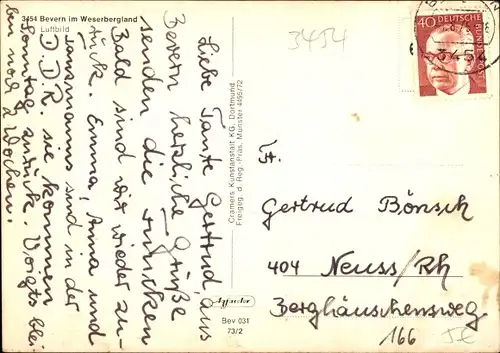 3454 Bevern im Weserbergland
Luftbild
Liebe Tante Gertrud, aus
Bevern herzliche Grüße
senden die
Bald sind wir wieder zu-
rück. Emma, Anna und
sind in der
D.D.R. sie kommen
Sonntag zurück. Voigts blei-
ben noch 2 Wochen.
Cramers Kunstanstalt KG, Dortmund
Freigeg. d. Reg.-Präs. Münster 4495/72
Bev 031
73/2
3454
40 DEUTSCHE
BUNDESPOST
345
Frl.
Gertrud Bönsch
404 Neuss/Rh
Berghäuschensweg
166